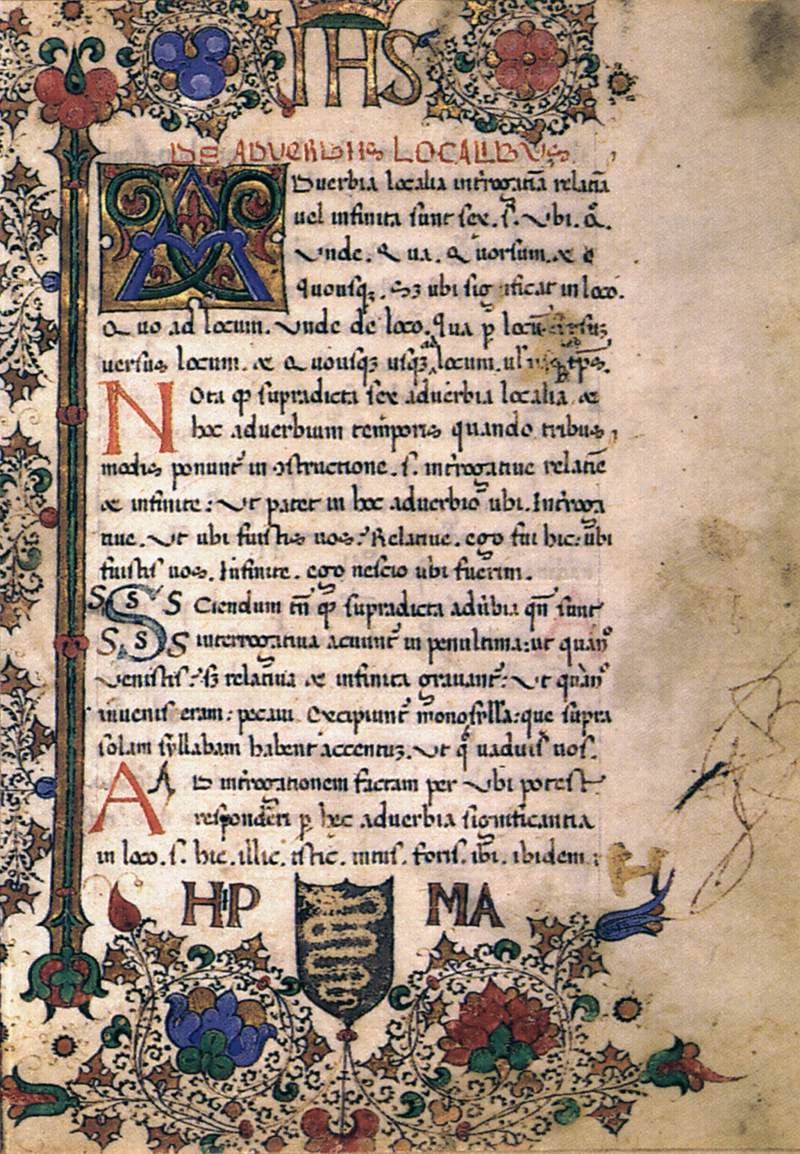 IHS
DE ADVERBIIS LOCALIBVS.
ADuerbia localia int̃rogatiã relatiã
uel infinita sunt sex. s̃. Vbi. Q̃.
Vnde. Qua. Quorsum. &
quousqꝫ. Sꝫ ubi significat in loco.
Quo ad locum. Vnde de loco. qua p̱ locũ
uersus locum. & Quousqꝫ usqꝫ ad locum. ul̃ tp̃s.
NOta ꝙ supradicta sex aduerbia localia &
hoc aduerbium temporis quando tribus
modis ponunt̃ in ↄstructione. s. int̃rogatiue relatiẽ
& infinite: Vt patet in hoc aduerbio ubi. Int̃roga
tiue. Vt ubi fuistis uos? Relatiue. ego fui hic: ubi
fuistis uos. Infinite. ego nescio ubi fuerim.
S S S S Ciendum tñ ꝙ supradicta adũbia qñ sunt
S S S interrogatiua acuunt̃ in penultima: ut quãñ
Venistis? sꝫ relatiua & infinita grauant̃: Vt quàñ
inuenis eram: pecaui. Excipiunt̃ monosyll̃a: que supra
solam syllabam habent accentuꝫ. Vt q̃ uaduis̃ uos.
AA D int̃rogationem factam per Vbi potest
respondẽri p̱ hec aduerbia significantia
in loco. s. hic. illic. istic. intus. foris. ibi. ibidem:
HP MA